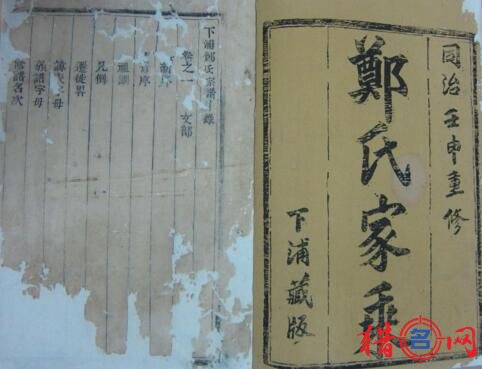 同治壬申重修
鄭氏家乘
下浦藏版
下浦鄭氏宗譜目錄
卷之一 文部
序
舊序
凡例
遷徙畧
字母
譜字母
譜名次
猎名网